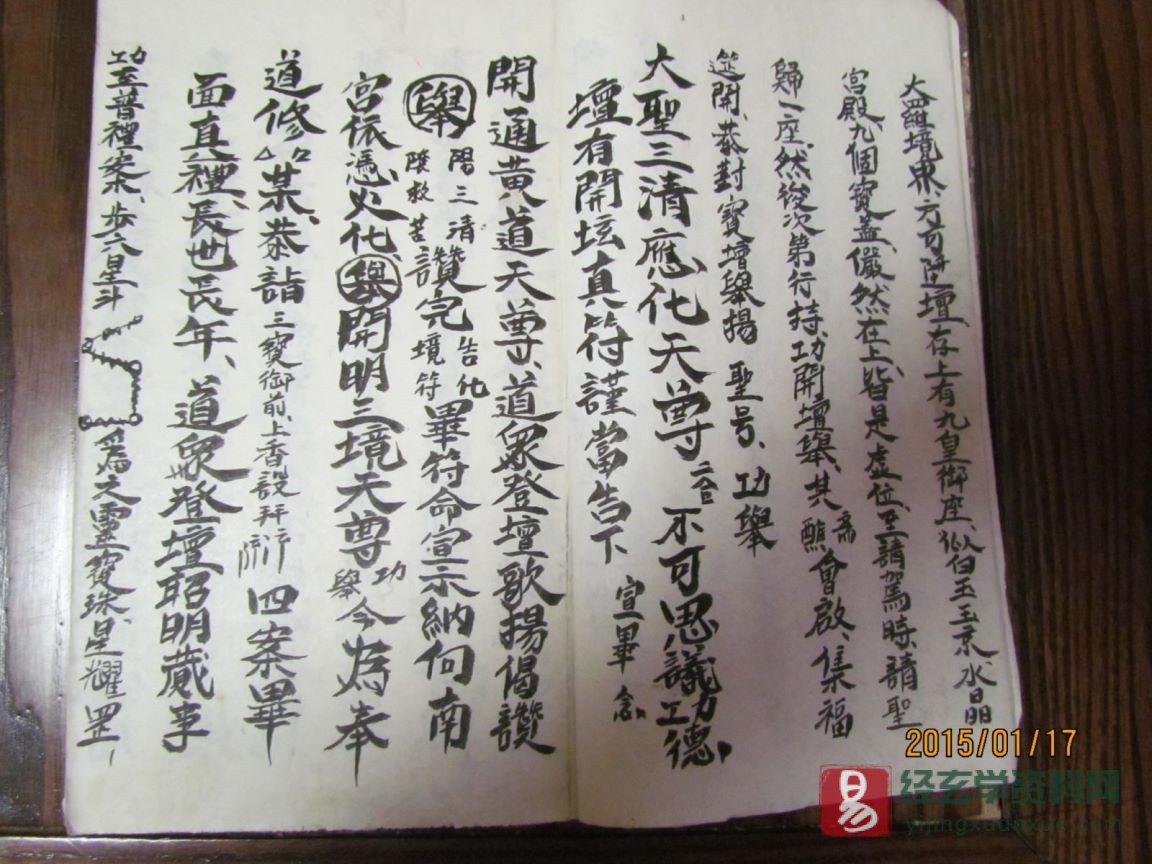 大羅境界、方可開壇、存上有九皇御座、似白玉玉京、水晶
宮殿、九個寶蓋、儼然在上、皆是虛位、至請駕時、請聖
歸一座、然後次第行持、功開壇舉、其齋醮會啟、集福
筵開、恭對寶壇舉揚 聖号、功舉
大聖三清應化天尊 不可思議功德、
壇有開坛真符謹當告下 宣畢念
開通黃道天尊、道眾登壇歌揚偈讚
舉 陽三清 陵救苦 讚完 告化 境符 畢符命宣示納向南
宮依憑火化、舉開明三境天尊 功舉 今為奉
道修△△某、恭詣三寶御前、上香設拜 四案畢
面真禮、長世長年、道眾登壇昭明蕆事
功至普禮案、步六星斗 爲之靈寶珠星耀罡
2015/01/17
易
经玄学资料网